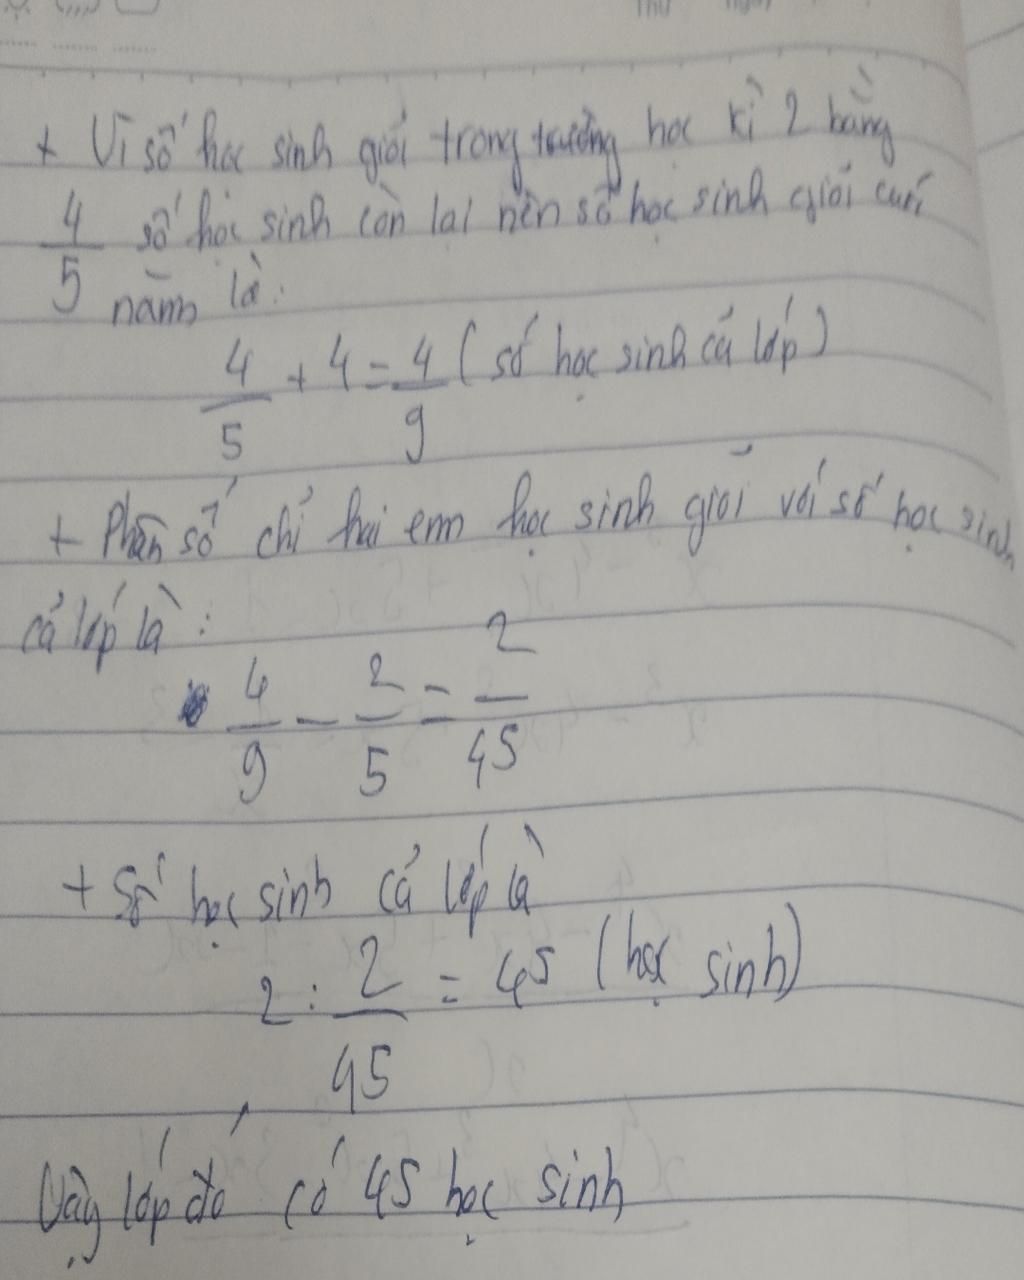 Thứ Ngày
+ Vì số học sinh giỏi trong trường học kì 2 bằng
4/5 số học sinh còn lại nên số học sinh giỏi cuối
năm là:
4/5 + 4 = 4/9 (số học sinh cả lớp)
+ Phân số chỉ hai em học sinh giỏi với số học sinh
cả lớp là:
4/9 - 2/5 = 2/45
+ Số học sinh cả lớp là
2 : 2/45 = 45 (học sinh)
Vậy lớp đó có 45 học sinh